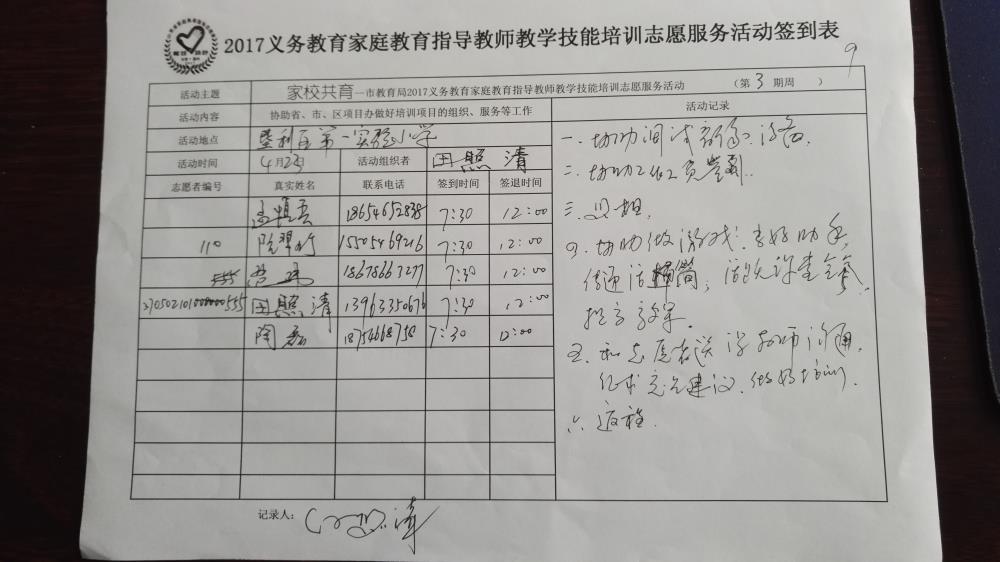 2017义务教育家庭教育指导教师教学技能培训志愿服务活动签到表
9
活动主题 家校共育—市教育局2017义务教育家庭教育指导教师教学技能培训志愿服务活动 （第 3 期周 ）
活动内容 协助省、市、区项目办做好培训项目的组织、服务等工作 活动记录
活动地点 垦利区第一实验小学
活动时间 4月23日 活动组织者 田照清
志愿者编号 真实姓名 联系电话 签到时间 签退时间
孟慎吾 18654652838 7:30 12:00
110 15505469216 7:30 12:00
18678663277 7:30 12:00
田照清 13963350676 7:30 12:00
陶磊 18754668758 7:30 12:00
一、协助调试音响、设备
二、协助工作人员签到
三、照相
四、协助做游戏：当好助手，
活跃课堂气氛，
提高效果。
五、和志愿者 教师沟通，
征求意见建议，做好培训
六、返程.
记录人：田照清